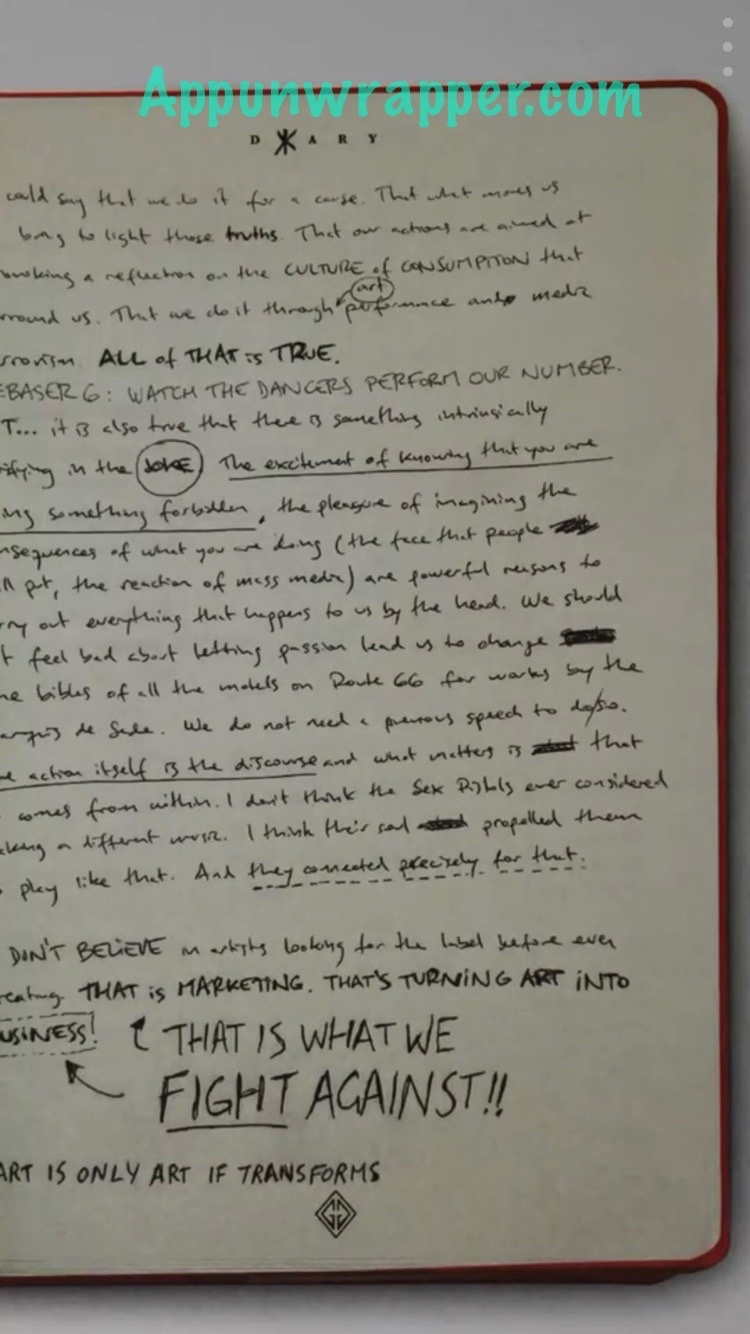 Appunwrapper.com
D A R Y
could say that we do it for a cause. That what moves us
bring to light those truths. That our actions are aimed at
a reflection on the CULTURE of CONSUMPTION that
art
round us. That we do it through performance and media
ALL of THAT is TRUE.
EBASER 6: WATCH THE DANCERS PERFORM OUR NUMBER.
T... it is also true that there is something intrinsically
ifying in the JOKE The excitement of knowing that you are
ing something forbidden, the pleasure of imagining the
nsequences of what you are doing (the face that people
ll put, the reaction of mass media) are powerful reasons to
ry out everything that happens to us by the head. We should
t feel bad about letting passion lead us to change
he bibles of all the motels on Route 66 for works by the
arquis de Sade. We do not need a previous speech to do so.
he action itself is the discourse and what matters is that
comes from within. I don't think the Sex Pistols ever considered
king a different music. I think their propelled them
play like that. And they connected precisely for that.
DON'T BELIEVE in artists looking for the label before even
reating. THAT is MARKETING. THAT'S TURNING ART iNTO
USiNESS! THAT IS WHAT WE
FIGHT AGAINST!!
ART IS ONLY ART IF TRANSFORMS